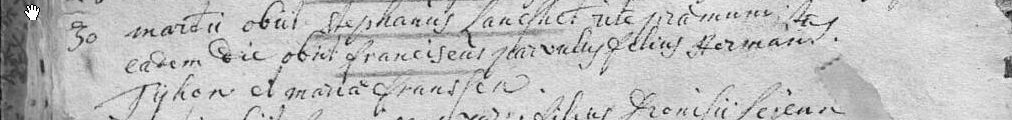 30 martii obiit Stephanus Lanchet rite præmunitus
eadem die obiit franciscus parvulus filius Hermani
Tijhon et maria franssen.
filius Dionisii